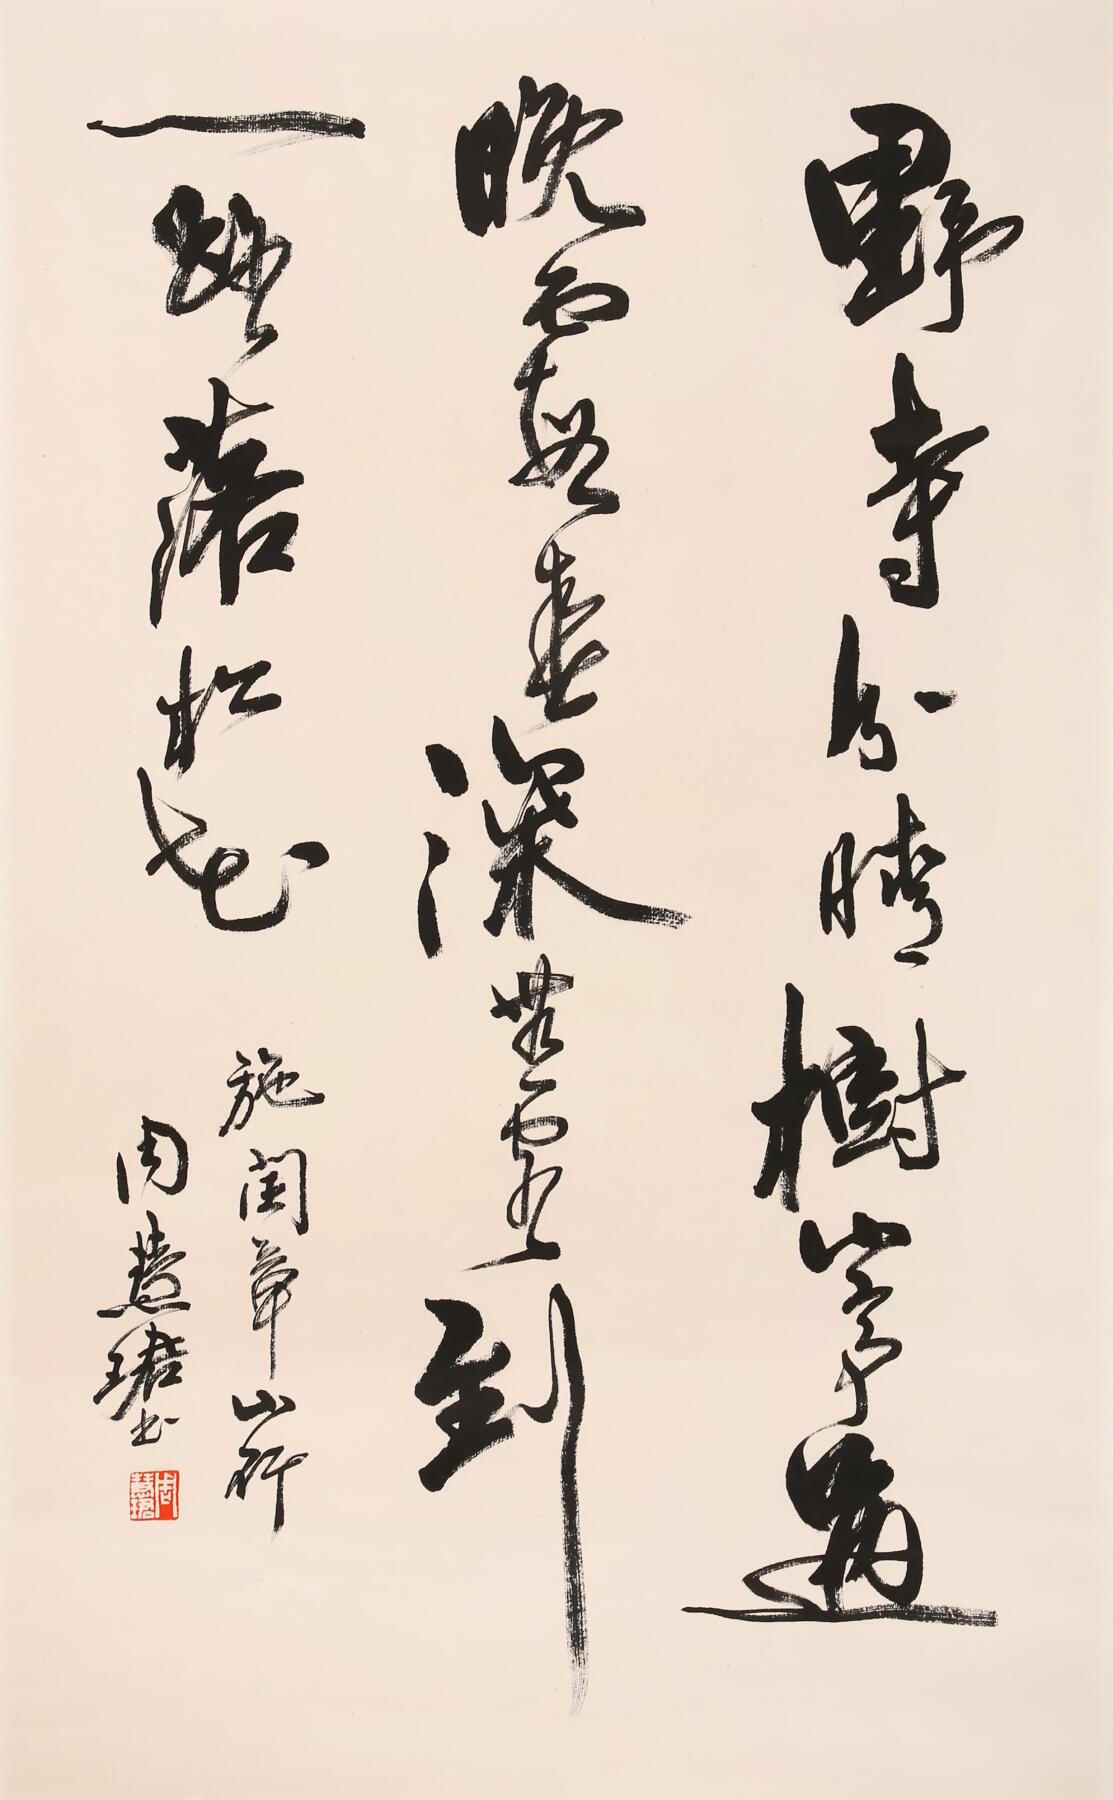 野寺分晴樹山亭過
晚霞春深無客到
一路落松花
施閏章山行
周慧珺书
周慧珺